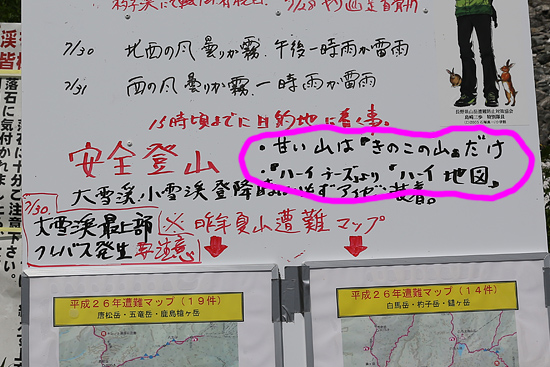 7/30 北西の風 曇りか霧、午後一時雨か雷雨
7/31 西の風 曇りか霧、一時雨か雷雨
15時頃までに目的地に着く事。
安全登山
・甘い山は『きのこの山』だけ
・『ハーイ チーズ』より『ハーイ 地図』
大雪渓、小雪渓
7/30
大雪渓最上部 ※昨年夏山遭難マップ
クレバス発生 要注意
平成26年遭難マップ(19件)
唐松岳・五竜岳・鹿島槍ヶ岳
平成26年遭難マップ(14件)
白馬岳・杓子岳・鑓ヶ岳
落石に十分ご注意下さい。
落石に気付かれまし